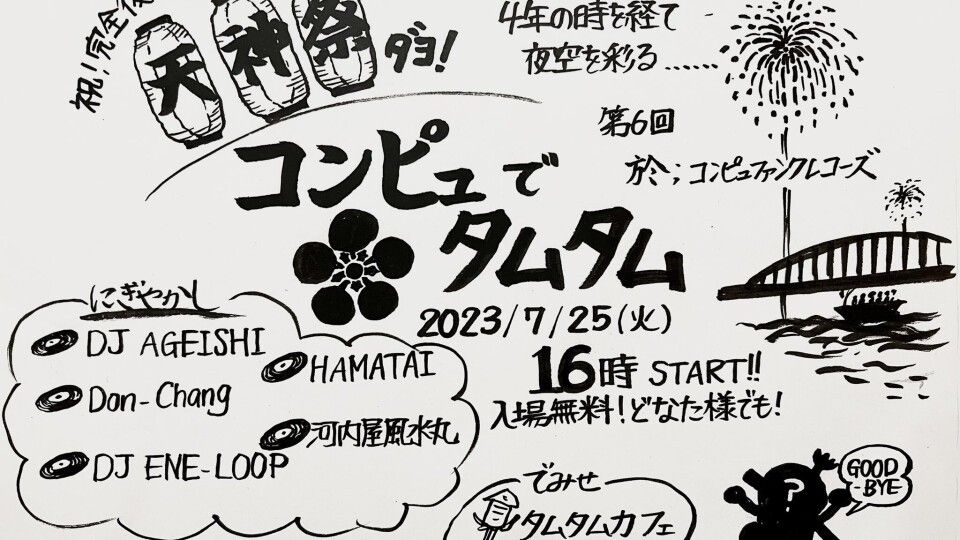 祝!完全復
天神祭
ダヨ!
4年の時を経て
夜空を彩る……
第6回
於;コンピュファンクレコーズ
コンピュで
タムタム
2023/7/25(火)
16時 START!!
入場無料!どなた様でも!
にぎやかし
DJ AGEISHI
HAMATAI
Don-Chang
河内屋風水丸
DJ ENE-LOOP
でみせ
タムタムカフェ
?
GOOD
-BYE